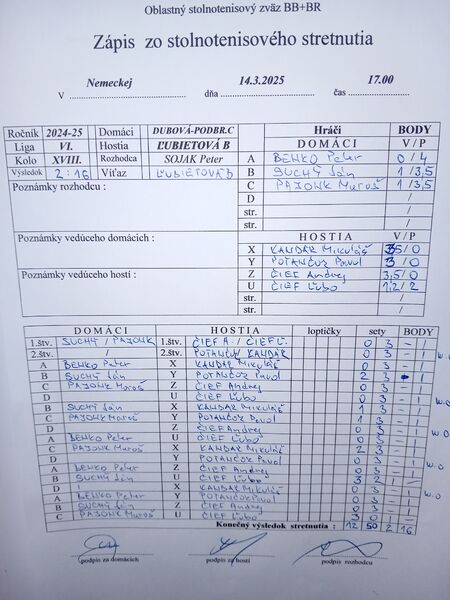 Oblastný stolnotenisový zväz BB+BR
Zápis zo stolnotenisového stretnutia
V Nemeckej dňa 14.3.2025 čas 17.00
Ročník 2024-25 Domáci DUBOVÁ-PODBR.C
Liga VI. Hostia ĽUBIETOVÁ B
Kolo XVIII. Rozhodca SOJAK Peter
Výsledok 2:16 Víťaz ĽUBIETOVÁ B
Hráči BODY
DOMÁCI V / P
A BENKO Peter 0/4
B SUCHÝ Ján 1/3,5
C PAJONK Maroš 1/3,5
D /
str. /
str. /
Poznámky rozhodcu :
Poznámky vedúceho domácich :
Poznámky vedúceho hostí :
HOSTIA V / P
X KANDÁR Mikuláš 3,5/0
Y POTANČOK Pavol 3/0
Z ČIEF Andrej 3,5/0
U ČIEF Ľubo /2
str. /
str. /
DOMÁCI HOSTIA loptičky sety BODY
1.štv. SUCHÝ / PAJONK 1.štv. ČIEF A. / ČIEF Ľ. 0 3 – 1
2.štv. 2.štv. POTANČOK/ KANDÁR 0 3 – 1 w.o
A BENKO Peter X KANDÁR Mikuláš 0 3 – 1
B SUCHÝ Ján Y POTANČOK Pavol 2 3 1
C PAJONK Maroš Z ČIEF Andrej 0 3 – 1
D U ČIEF Ľubo 0 3 – 1 w.o
B SUCHÝ Ján X KANDÁR Mikuláš 1 3 – 1
C PAJONK Maroš Y POTANČOK Pavol 1 3 – 1
D Z ČIEF Andrej 0 3 – 1 w.o
A BENKO Peter U ČIEF Ľubo 0 3 – 1
C PAJONK Maroš X KANDÁR Mikuláš 2 3 – 1
D Y POTANČOK Pavol 0 3 – 1 w.o
A BENKO Peter Z ČIEF Andrej 0 3 – 1
B SUCHÝ Ján U ČIEF Ľubo 3 2 1 –
D X KANDÁR Mikuláš 0 3 – 1 w.o
A BENKO Peter Y POTANČOK Pavol 0 3 – 1
B SUCHÝ Ján Z ČIEF Andrej 0 3 – 1
C PAJONK Maroš U ČIEF Ľubo 3 0 1
Konečný výsledok stretnutia : 12 50 2 16
podpis za domácich podpis za hostí podpis rozhodcu